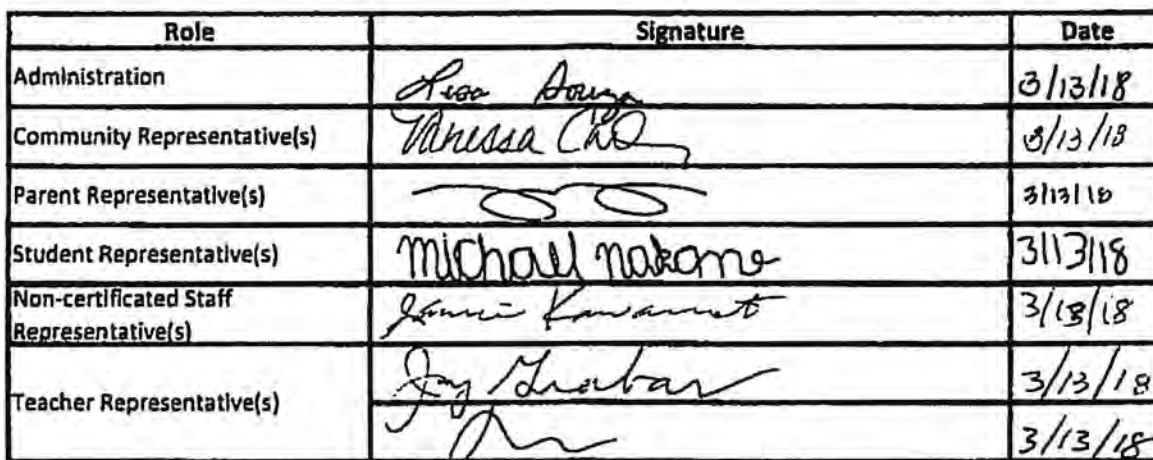 Role Signature Date
Administration Lisa Souza 3/13/18
Community Representative(s) Vanessa 3/13/18
Parent Representative(s) 3/13/18
Student Representative(s) michael nakano 3/13/18
Non-certificated Staff
Representative(s) 3/13/18
Teacher Representative(s) Joy 3/13/18
3/13/18